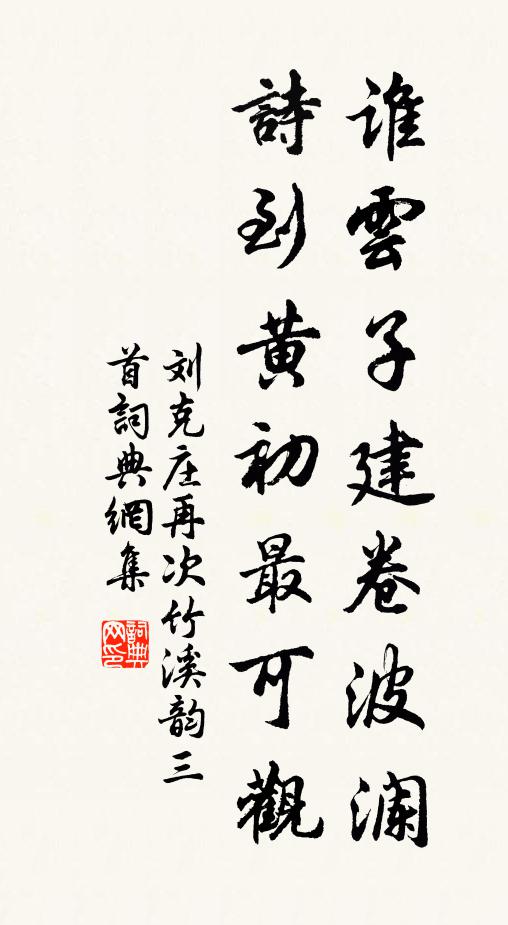 谁雲子建卷波澜
詩到黄初最可觀
刘克庄再次竹溪韵三
首詞典網集
詞典网印